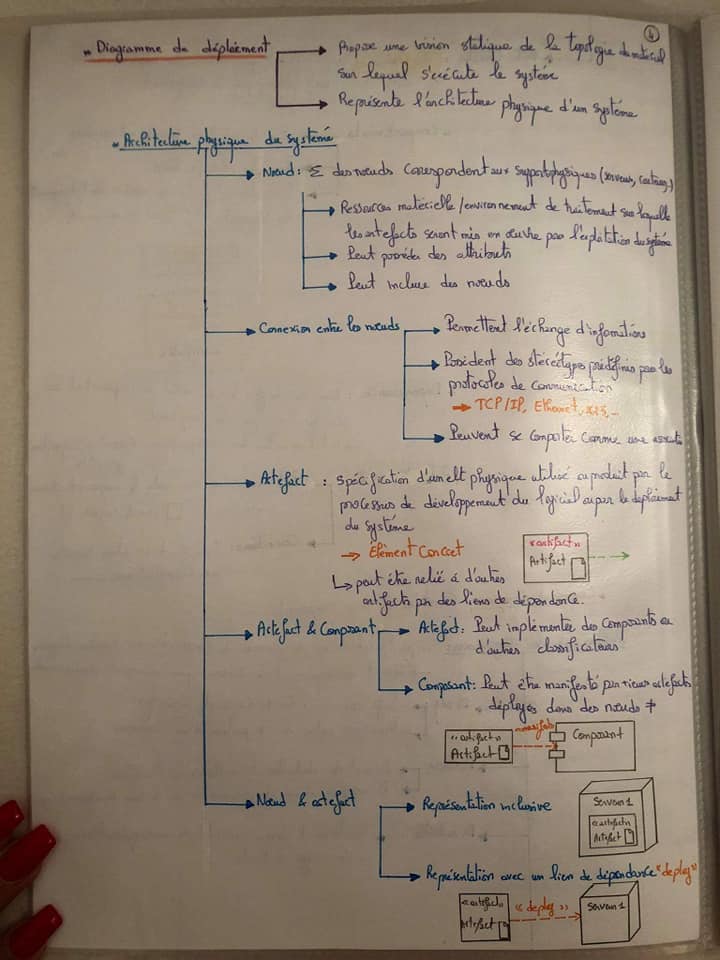 4
" Diagramme de déploiement
Propose une vision statique de la topologie du matériel
sur lequel s'exécute le système
Représente l'architecture physique d'un système
" Architecture physique du système
Nœud: Σ des nœuds correspondent aux supports physiques (serveurs, routeurs,)
Ressources matérielle / environnement de traitement sur laquelle
les artefacts seront mis en œuvre par l'exploitation du système
Peut posséder des attributs
Peut inclure des nœuds
Connexion entre les nœuds
Permettent l'échange d'infomations
Possèdent des stéréotypes prédéfinis par les
protocoles de communication
→ TCP/IP, Ethernet, X25, ..
Peuvent se comporter comme une
Artefact : Spécification d'un elt physique utilisé ou produit par le
processus de développement du logiciel ou par le déploiement
du système
→ Élément Concret
«artifact»
Artifact
↳ peut être relié à d'autres
artifacts par des liens de dépendance.
Artefact & Composant
Artefact: Peut implémenter des composants ou
d'autres classificateurs
Composant: Peut être manifesté par +ieurs artefacts
déployés dans des nœuds ≠
«manifest»
«artifact»
Artifact
Composant
Nœud & artefact
Représentation inclusive
Serveur 1
«artifact»
Artifact
Représentation avec un lien de dépendance "deploy"
«artifact»
Artifact
« deploy »
Serveur 1